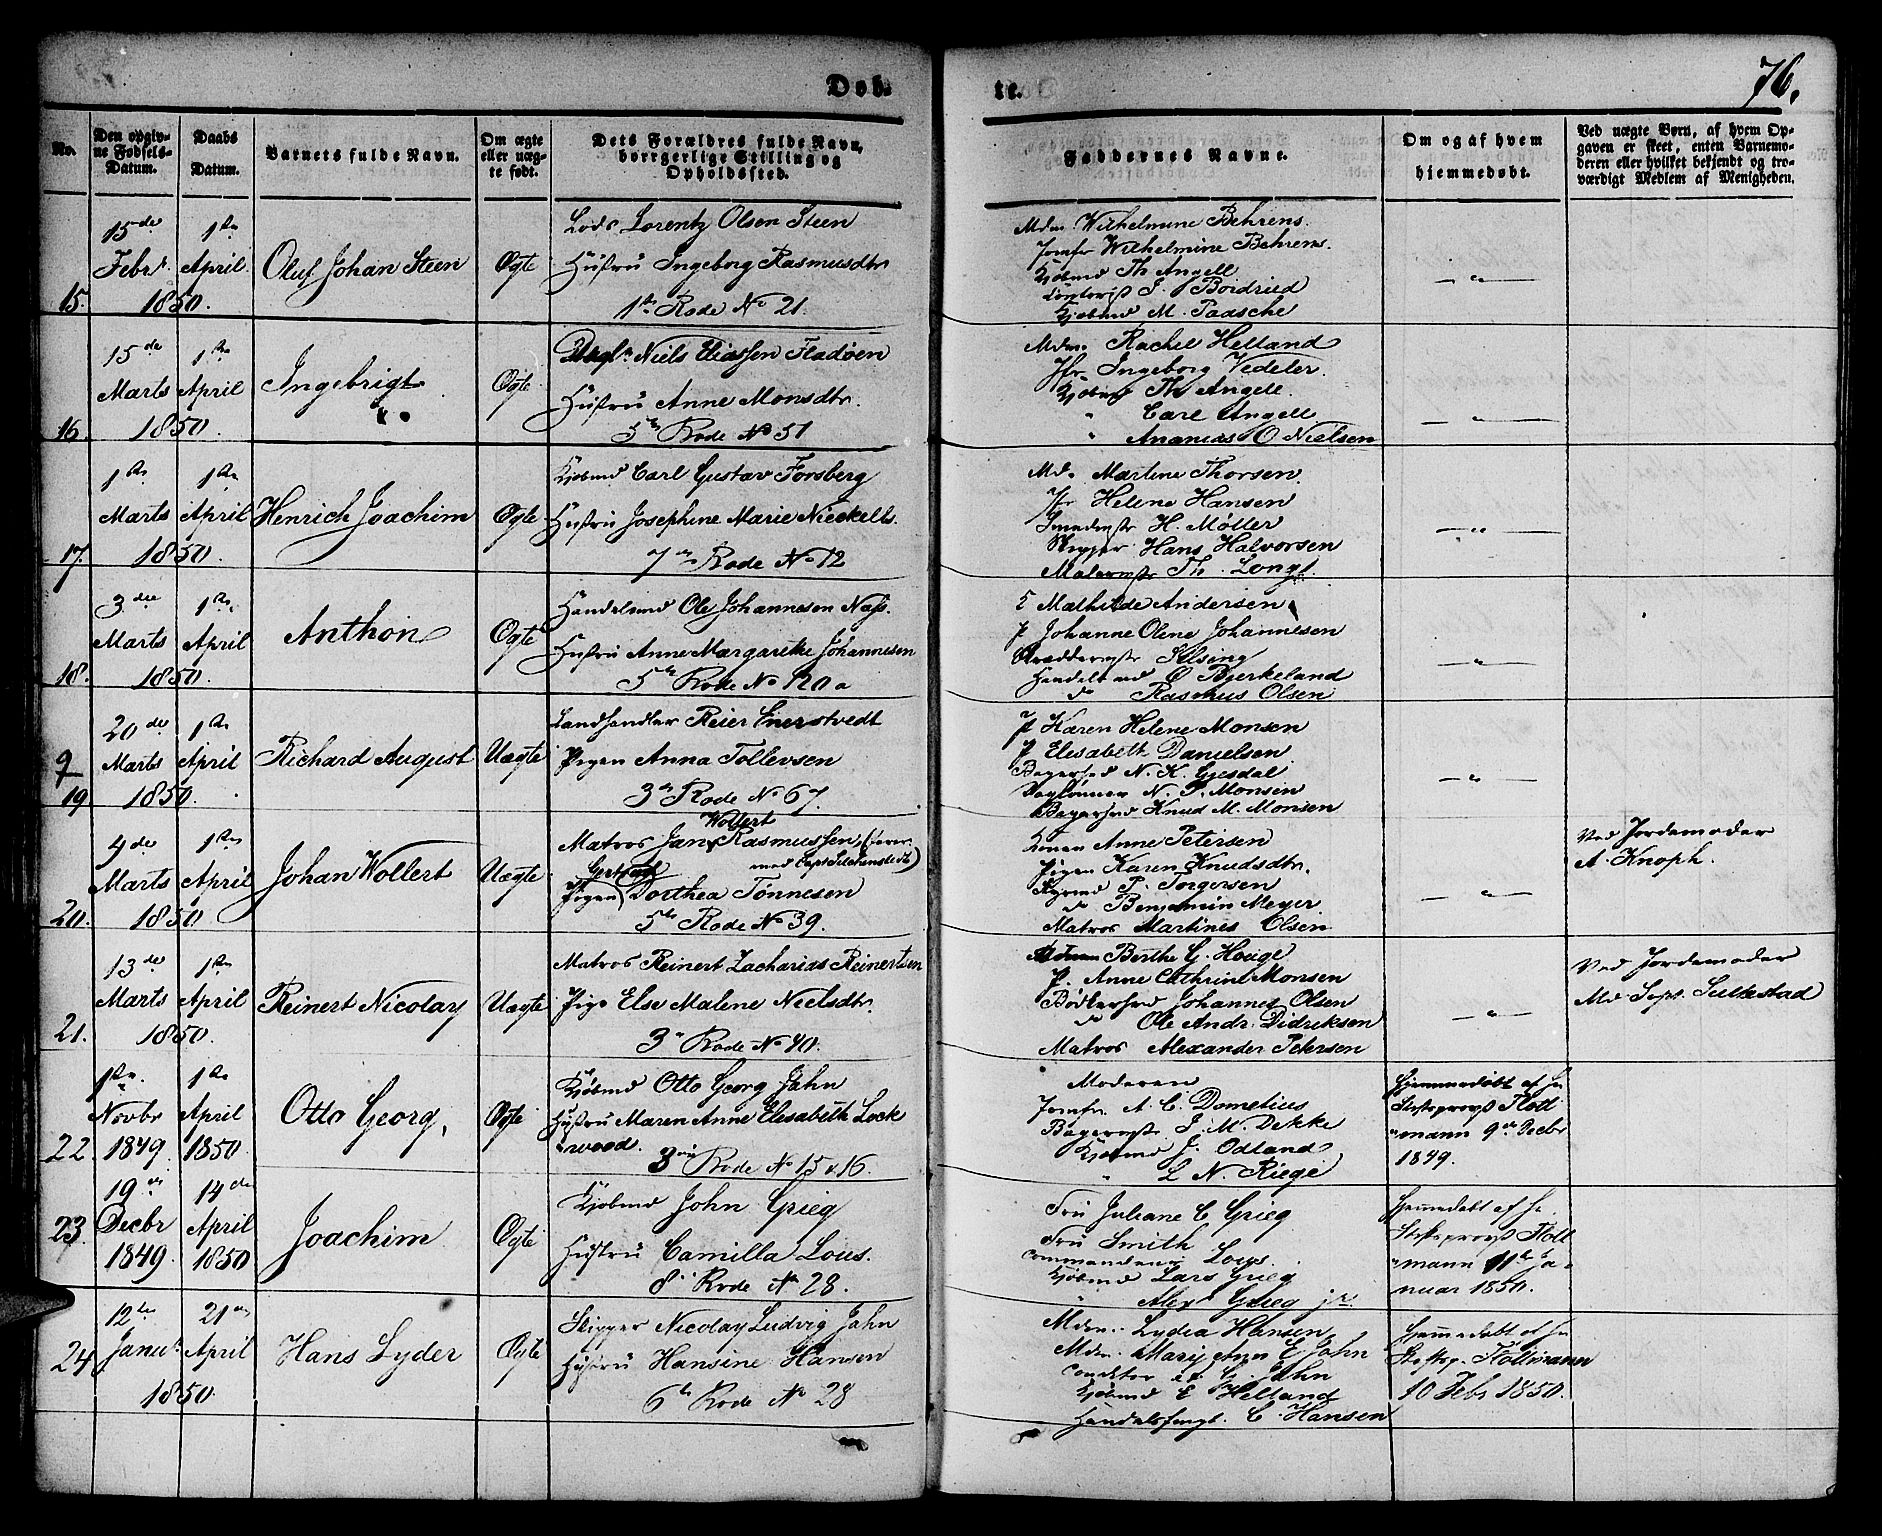 Døb-
te.
76.
No.
Den opgiv-
ne Fødsels-
Datum.
Daabs
Datum.
Barnets fulde Navn.
Om ægte
eller uæg-
te født.
Dets Forældres fulde Navn,
borrgerlige Stilling og
Opholdssted.
Faddernes Navne.
Om og af hvem
hjemmedøbt.
Ved uægte Børn, af hvem Op-
gaven er skeet, enten Barnemo-
deren eller hvilket bekjendt og tro-
værdigt Medlem af Menigheden.
15.
15de
Febr.
1850.
1ste
April
Oluf Johan Steen
Ægte
Lods Lorentz Olsen Steen
Hustru Ingeborg Rasmusdtr
1ste Rode No 21.
Mdm. Wilhelmine Behrens.
Jomfr Wilhelmine Behrens.
Kjøbmd Th Angell
Contorist J. Boidried
Kjøbmd M. Paasche
— " —
16.
15de
Marts
1850.
1ste
April
Ingebrigt
Ægte
Niels Eliassen Fladøen
Hustru Anne Monsdtr.
5te Rode No 51
Mdm. Rachel Helland
Jfr. Ingeborg Vedeler.
Kjøbmd Th Angell
" Carl Angell
" Ananias O Nielsen
— " —
17.
1ste
Marts
1850.
1ste
April
Henrich Joachim
Ægte
Kjøbmd Carl Gustav Forsberg
Hustru Josephine Marie Nieckells.
7de Rode No 12
Md. Martine Thorsen.
Jfr Helene Hansen
Smedemstr H. Møller
Skipper Hans Halvorsen
Malermstr Th. Longt.
— " —
18.
3die
Marts
1850.
1ste
April
Anthon
Ægte
Handelsmd Ole Johannesen Næss.
Hustru Anne Margarethe Johannesen
5te Rode No 120 a
Mathilde Andersen
P Johanne Olene Johannesen
Skræddermstr Kilsing
Handelsmd O Bjerkeland
do Rasmus Olsen
— " —
9
19
20de
Marts
1850.
1ste
April
Richard August
Uægte
Landhandler Reier Enerstvedt
Pigen Anna Tollevsen
3die Rode No 67.
P Karen Helene Monsen
P Elisabeth Danielsen
Bagersvd N. K. Gjesdal
Dagslønner N. P. Monsen
Bagersvd Knud M. Monsen
— " —
20.
4de
Marts
1850.
1ste
April
Johan Wollert
Uægte
Wollert
Matros Jan Rasmussen
Pigen Dorthea Tønnesen
5te Rode No 39.
Konen Anne Petersen
Pigen Karen Knudsdtr.
P. Torgersen
do Benjamin Meyer
Matros Martines Olsen
— " —
Ved Jordemoder
A. Knoph.
21.
13de
Marts
1850.
1ste
April
Reinert Nicolay
Uægte
Matros Reinert Zacharias Reinertsen
Pige Else Malene Nielsdtr.
3die Rode No 40.
Berthe G. Houge
P. Anne Cathrine Monsen
Bødkersvd Johannes Olsen
do Ole Andr. Didriksen
Matros Alexander Petersen
— " —
Ved Jordemoder
Md Sept. Sulkestad
22
1ste
Novbr
1849.
1ste
April
1850.
Otto Georg,
Ægte
Kjøbmd Otto Georg Jahn
Hustru Maren Anne Elisabeth Lock
-wood.
3die Rode No 15 & 16.
Moderen
Jomfr. A. C. Dometius
Bagermstr. J. M. Dekke
Kjøbmd J. Odland
" L N. Riege
Hjemmedøbt af Hr
Stiftsprovst Kolt
-mann 9de Decbr
1849.
23.
19de
Decbr
1849.
14de
April
1850
Joachim
Ægte
Kjøbmd John Grieg
Hustru Camilla Lous.
8de Rode No 28.
Fru Juliane C Grieg
Fru Smith
Commandeur Lous.
Kjøbmd Lars Grieg
Alex Grieg jr.
Hjemmedøbt af Hr
Stiftsprovst Kolt
-mann 11te Ja-
nuar 1850.
24
12te
Janur
1850.
21de
April
Hans Lyder
Ægte
Skipper Nicolay Ludvig Jahn
Hustru Hansine Hansen
6te Rode No 28
Mdm. Lydia Hansen
Mdm. Mary Ann E. Jahn
Conditor G. Jahn
Kjøbmd E Helland
Handelsfuldm. C. Hansen
Hjemmedøbt af Hr
Stiftsp. Koltmann
10 Febr 1850.